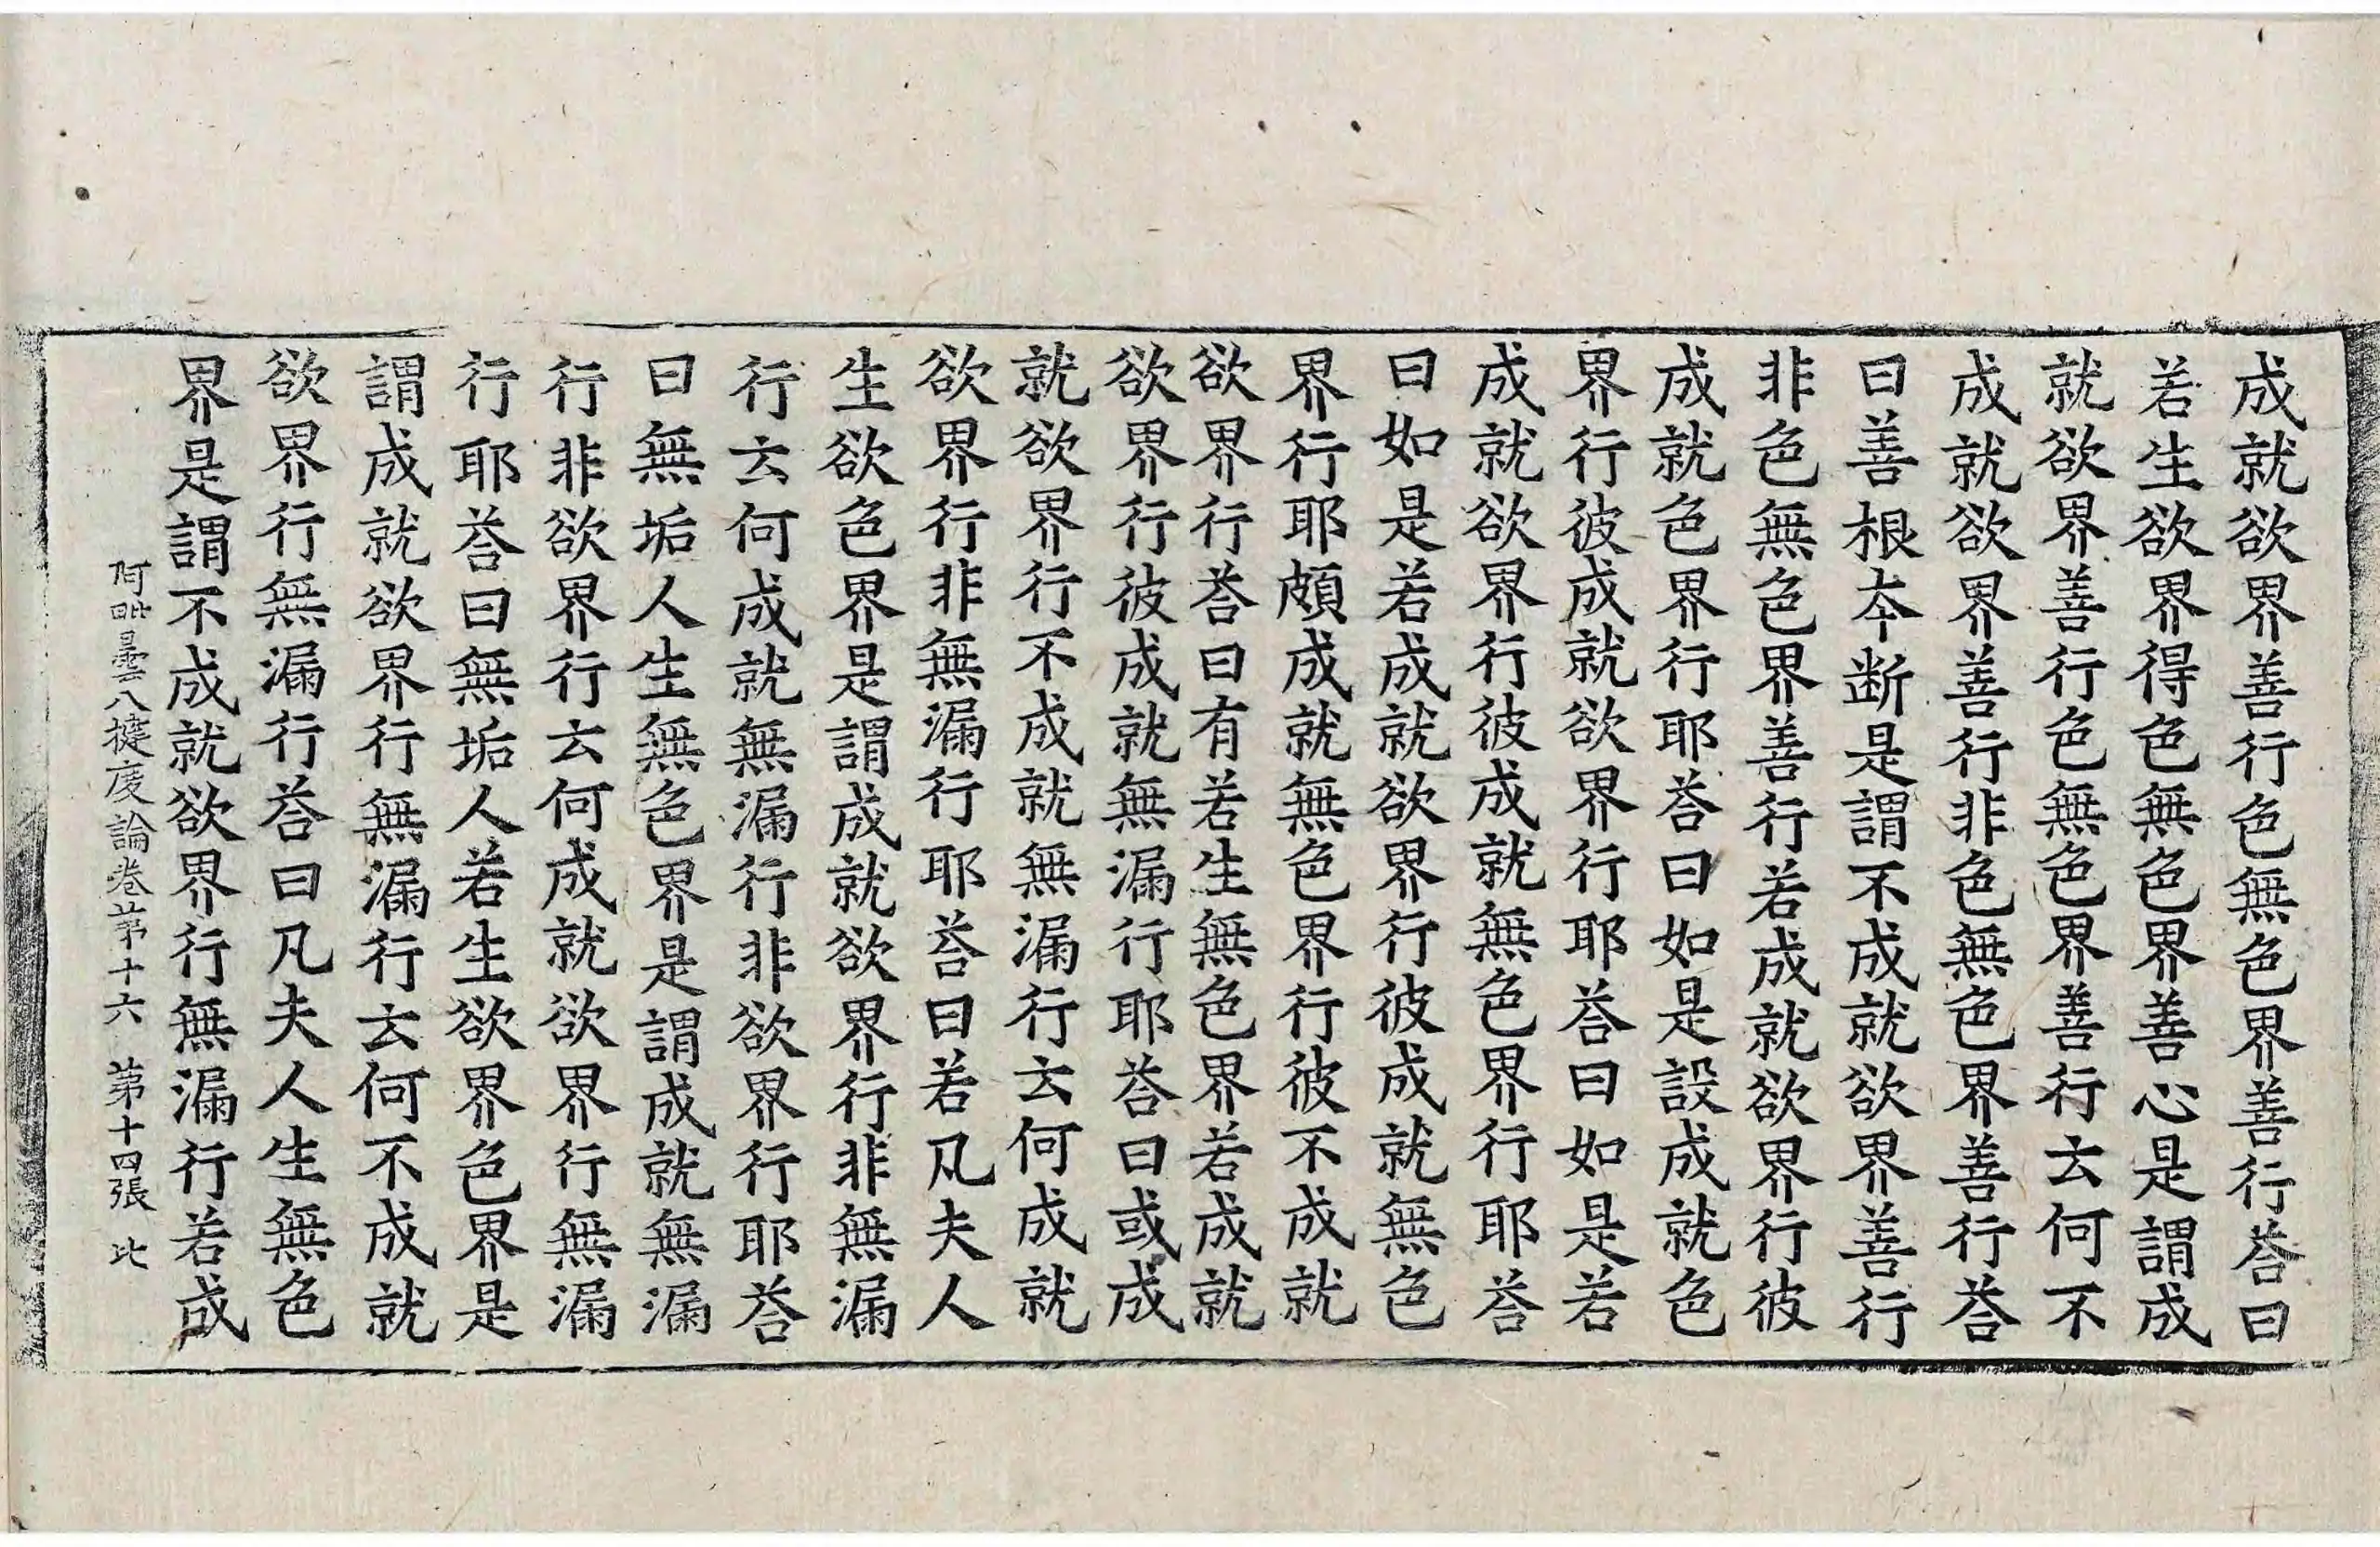 成就欲界善行色無色界善行荅曰
若生欲界得色無色界善心是謂成
就欲界善行色無色界善行云何不
成就欲界善行非色無色界善行荅
曰善根夲断是謂不成就欲界善行
非色無色界善行若成就欲界行彼
成就色界行耶荅曰如是設成就色
界行彼成就欲界行耶荅曰如是若
成就欲界行彼成就無色界行耶荅
曰如是若成就欲界行彼成就無色
界行耶頗成就無色界行彼不成就
欲界行荅曰有若生無色界若成就
欲界行彼成就無漏行耶荅曰或成
就欲界行不成就無漏行云何成就
欲界行非無漏行耶荅曰若凡夫人
生欲色界是謂成就欲界行非無漏
行云何成就無漏行非欲界行耶荅
曰無垢人生無色界是謂成就無漏
行非欲界行云何成就欲界行無漏
行耶荅曰無垢人若生欲界色界是
謂成就欲界行無漏行云何不成就
欲界行無漏行荅曰凡夫人生無色
界是謂不成就欲界行無漏行若成
阿毗曇八揵度論卷第十六 第十四張 比